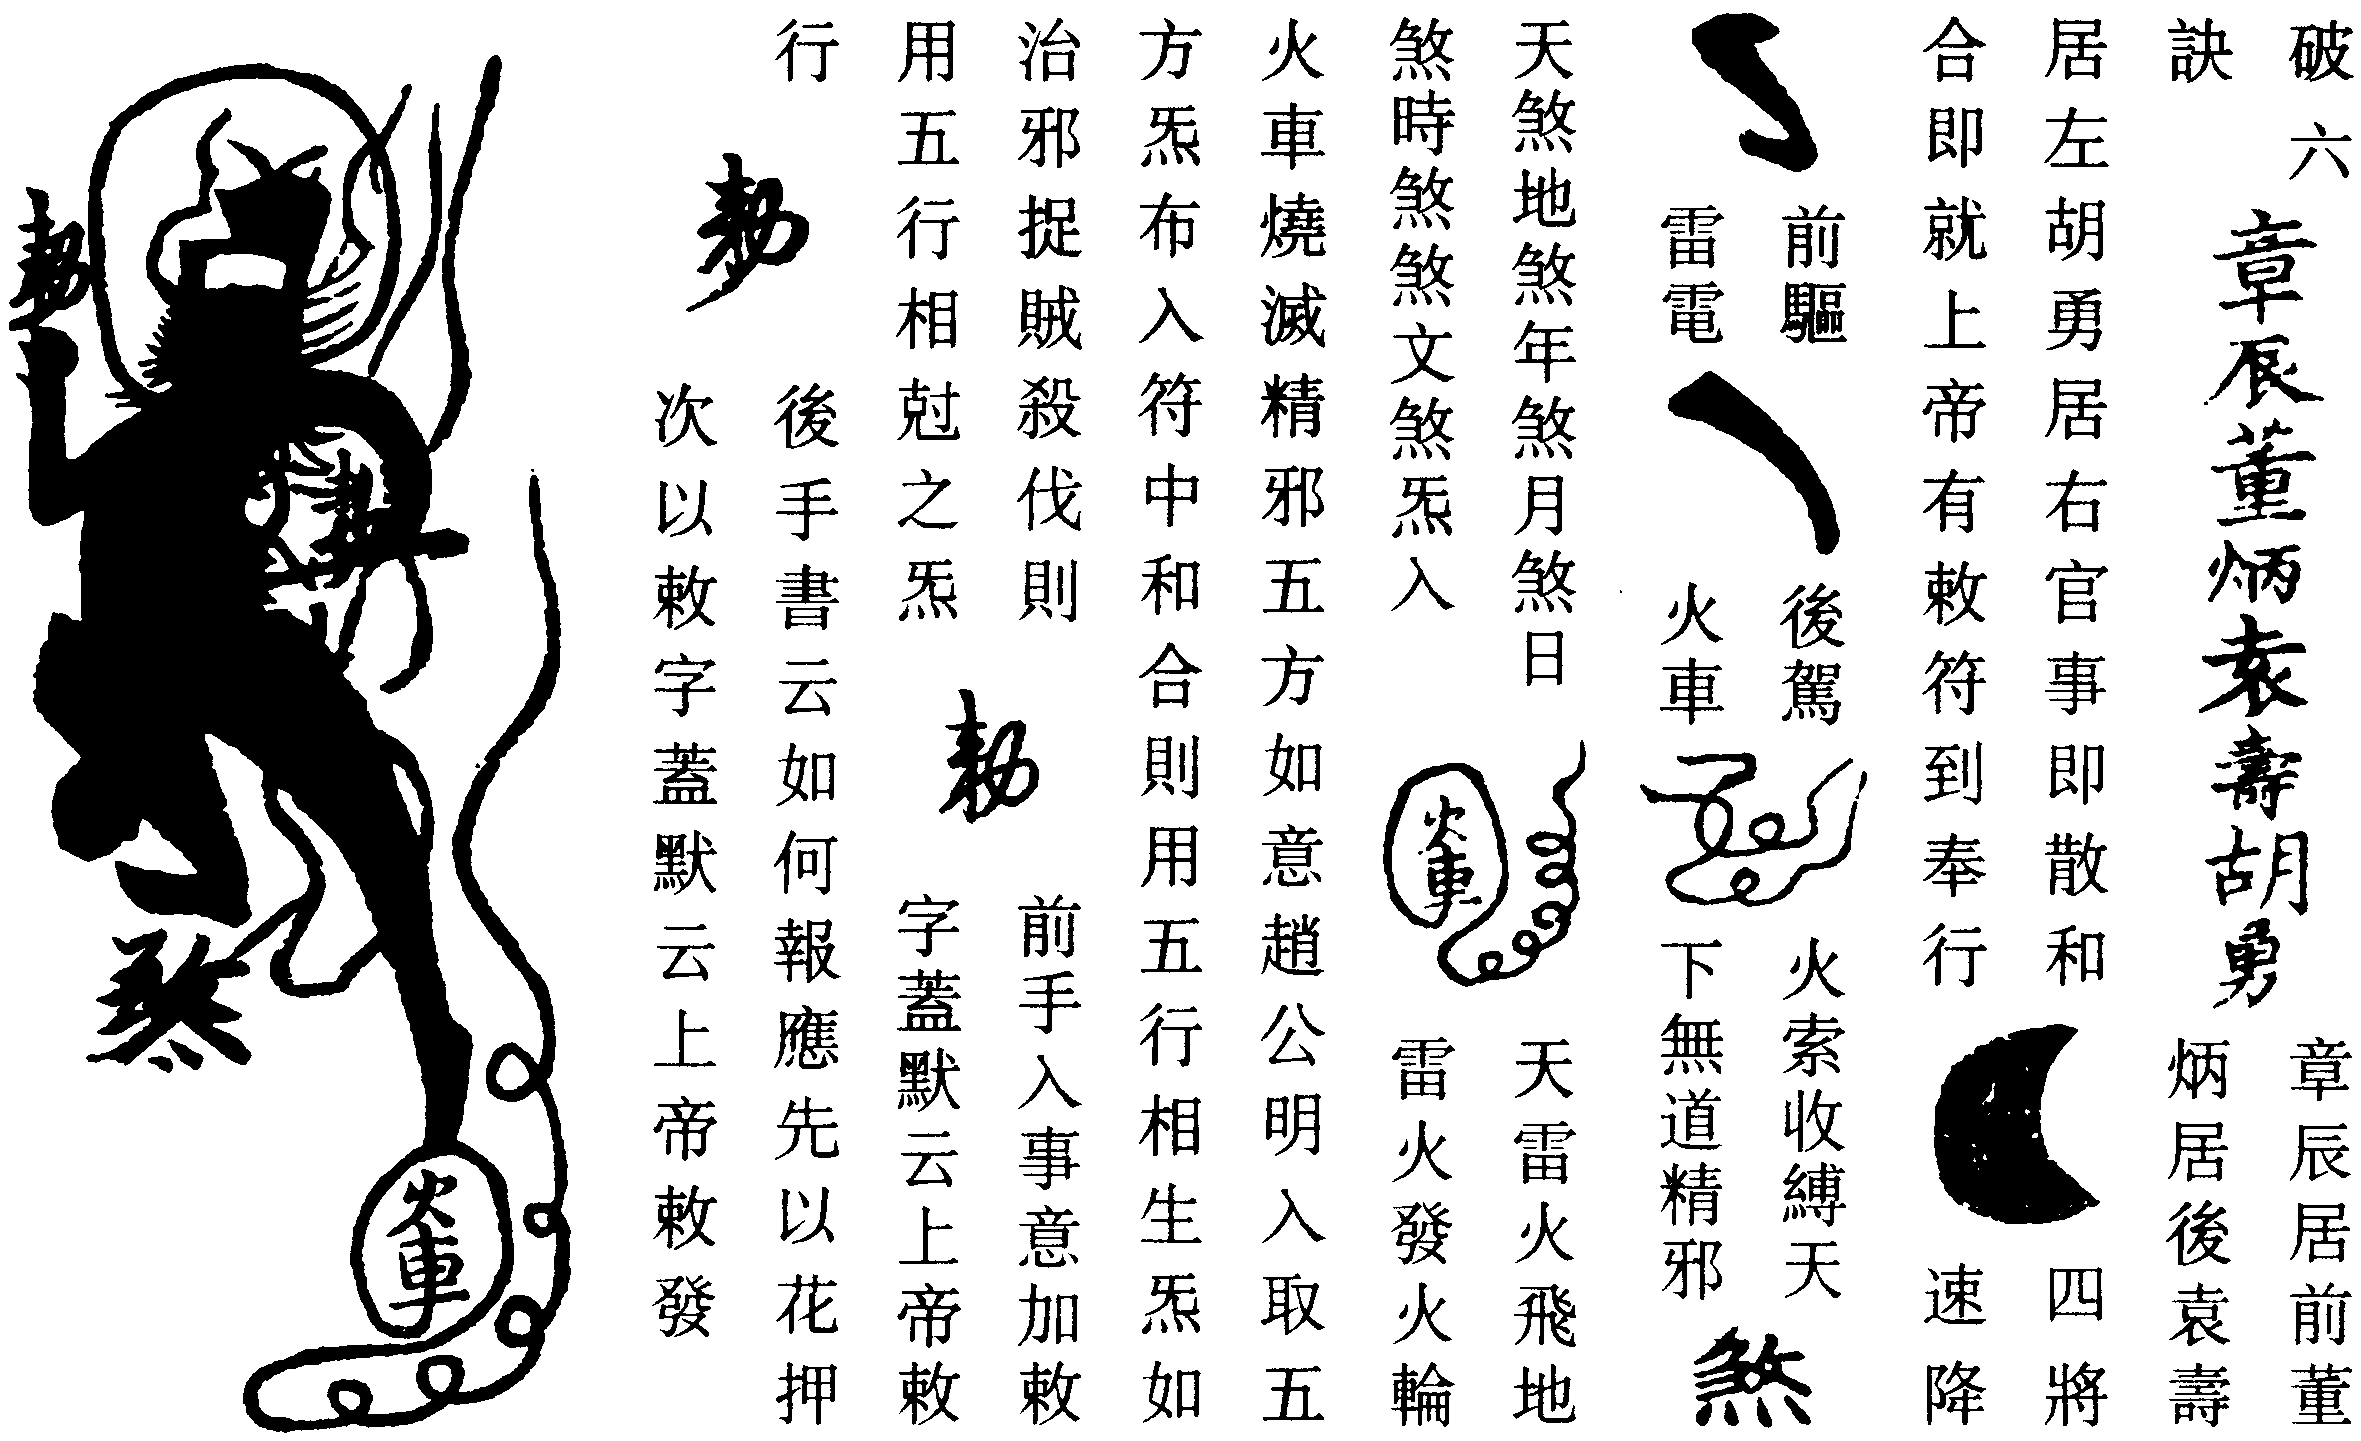 破六
訣
章辰董炳袁壽胡勇
章辰居前董
炳居後袁壽
居左胡勇居右官事即散和
合即就上帝有敕符到奉行
四將
速降
前驅
雷電
後駕
火車
火索收縛天
下無道精邪
煞
天煞地煞年煞月煞日
煞時煞煞煞文煞炁入
火車
天雷火飛地
雷火發火輪
火車燒滅精邪五方如意趙公明入取五
方炁布入符中和合則用五行相生炁如
治邪捉賊殺伐則
用五行相尅之炁
勅
前手入事意加敕
字蓋默云上帝敕
行
勅
後手書云如何報應先以花押
次以敕字蓋默云上帝敕發
勅
勅
煞
火車